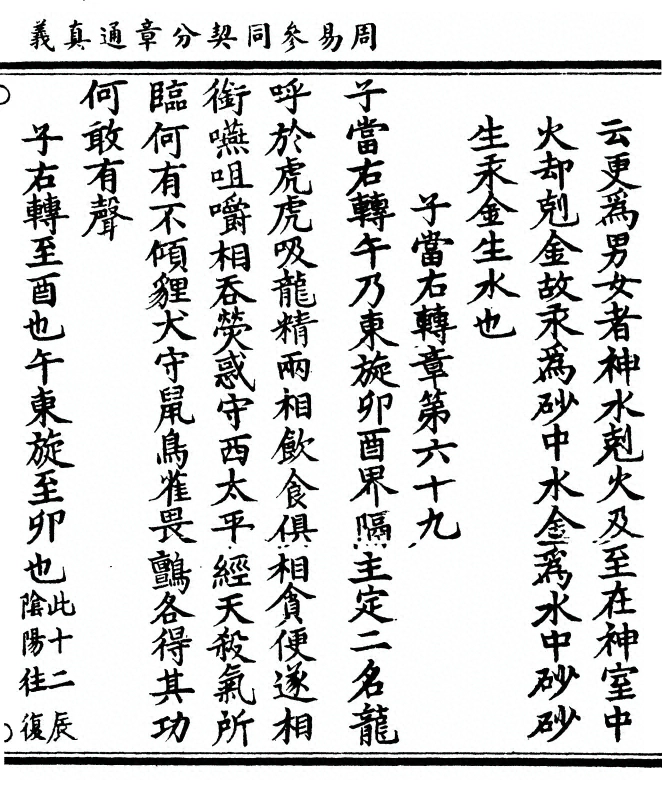 周易參同契分章通真義
云更為男女者神水剋火及至在神室中
火却剋金故汞為砂中水金為水中砂砂
生汞金生水也
子當右轉章第六十九
子當右轉午乃東旋卯酉界隔主定二名龍
呼於虎虎吸龍精兩相飲食俱相貪便遂相
銜嚥咀嚼相吞熒惑守西太平經天殺氣所
臨何有不傾貍犬守鼠鳥雀畏鸇各得其功
何敢有聲
子右轉至酉也午東旋至卯也此十二辰
陰陽往復